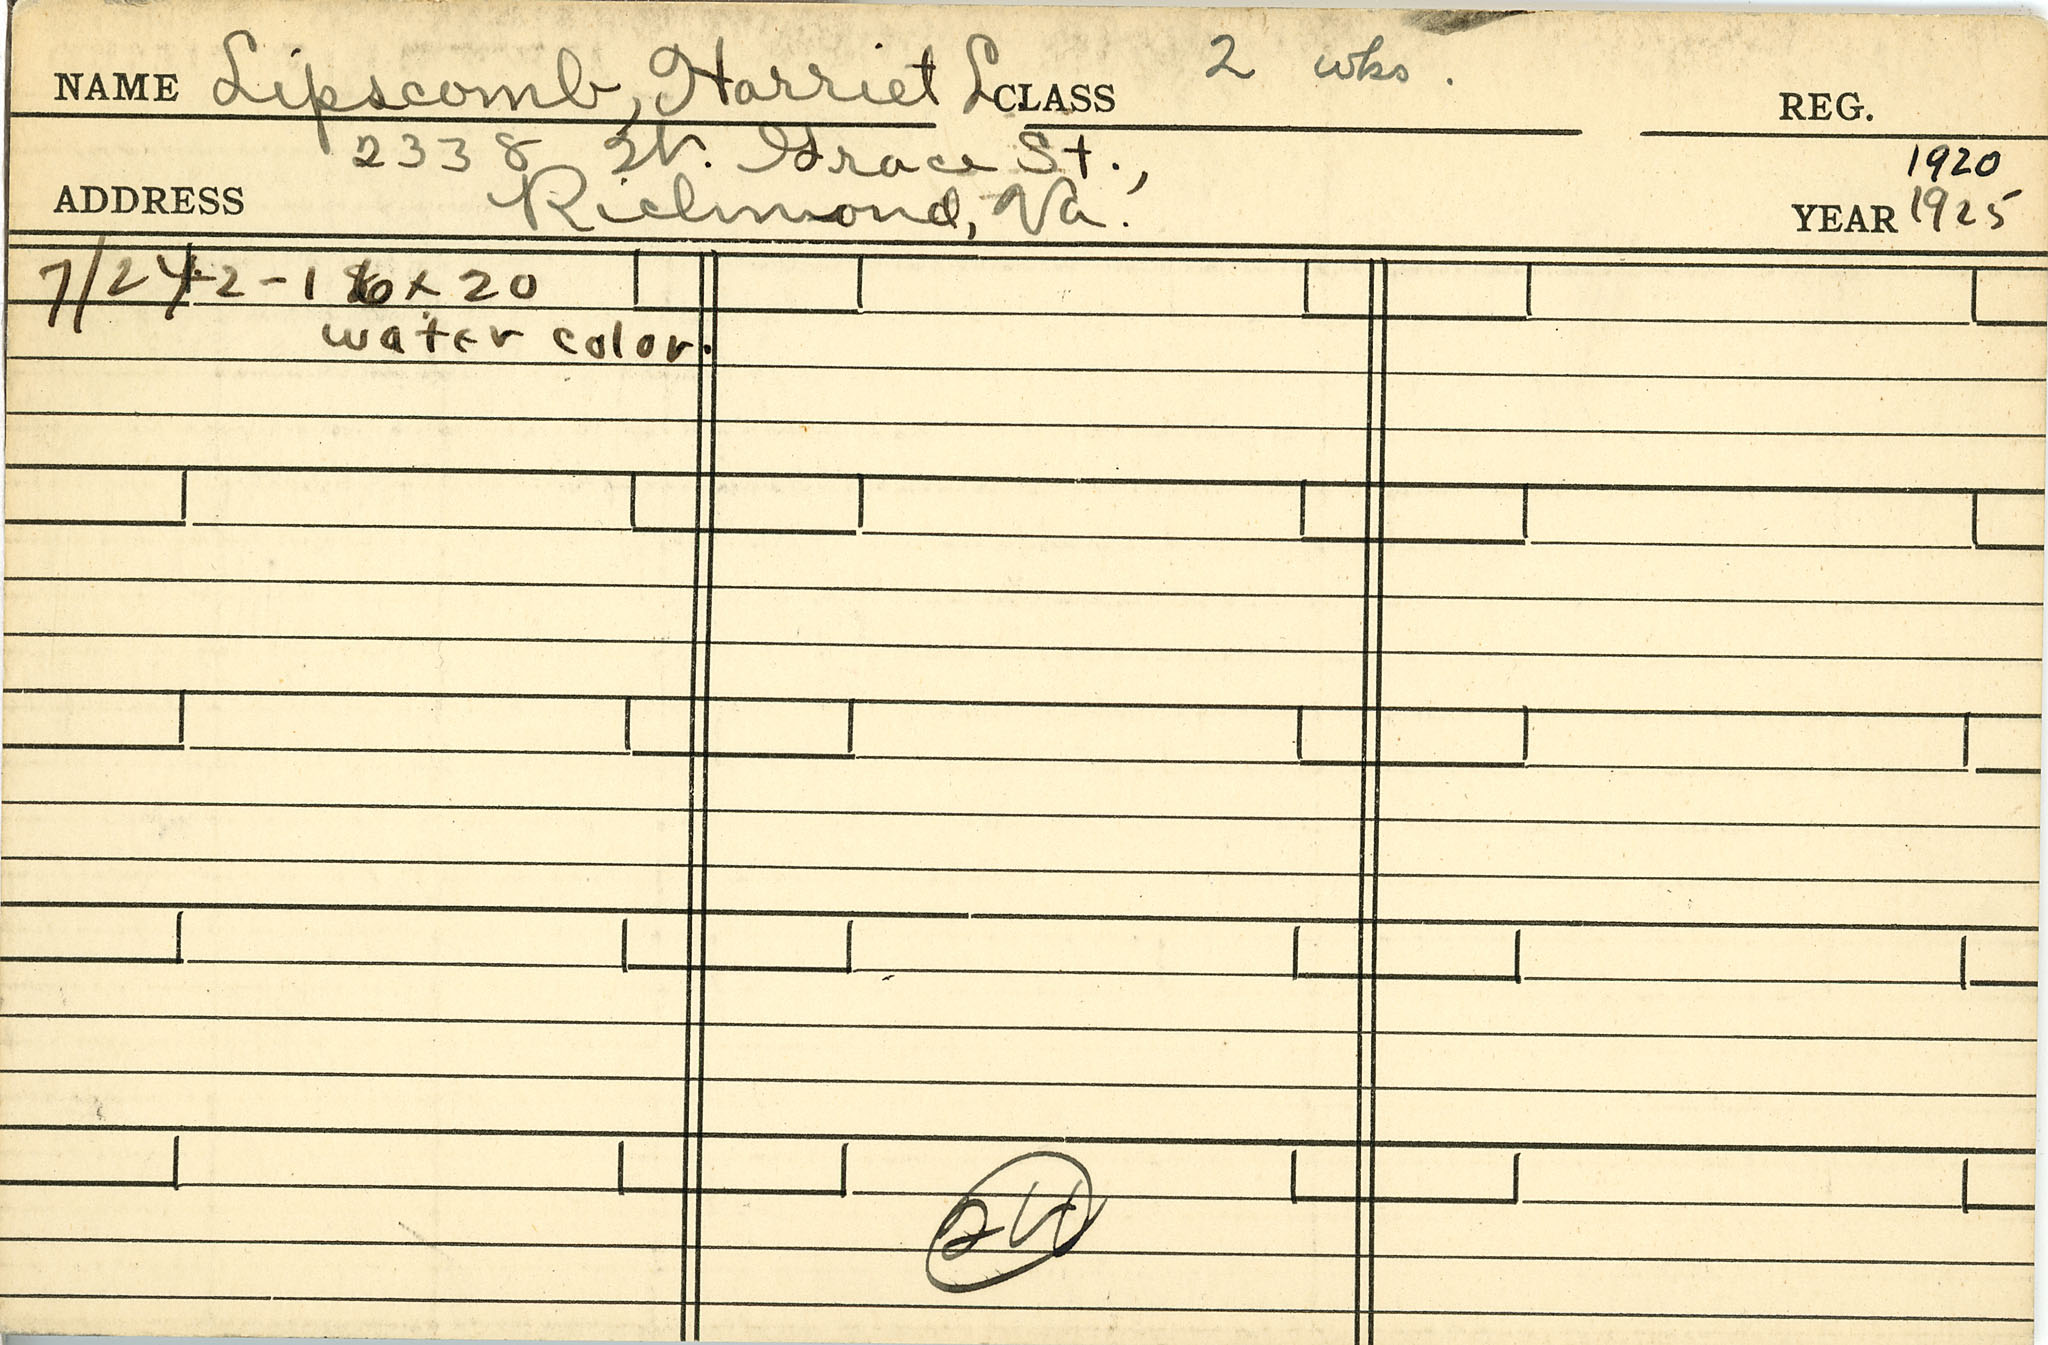 NAME Lipscomb, Harriet L. CLASS 2 wks. REG.
2338 W. Grace St., 1920
ADDRESS Richmond, Va. YEAR 1925
7/24-2-16x20
water color.
24